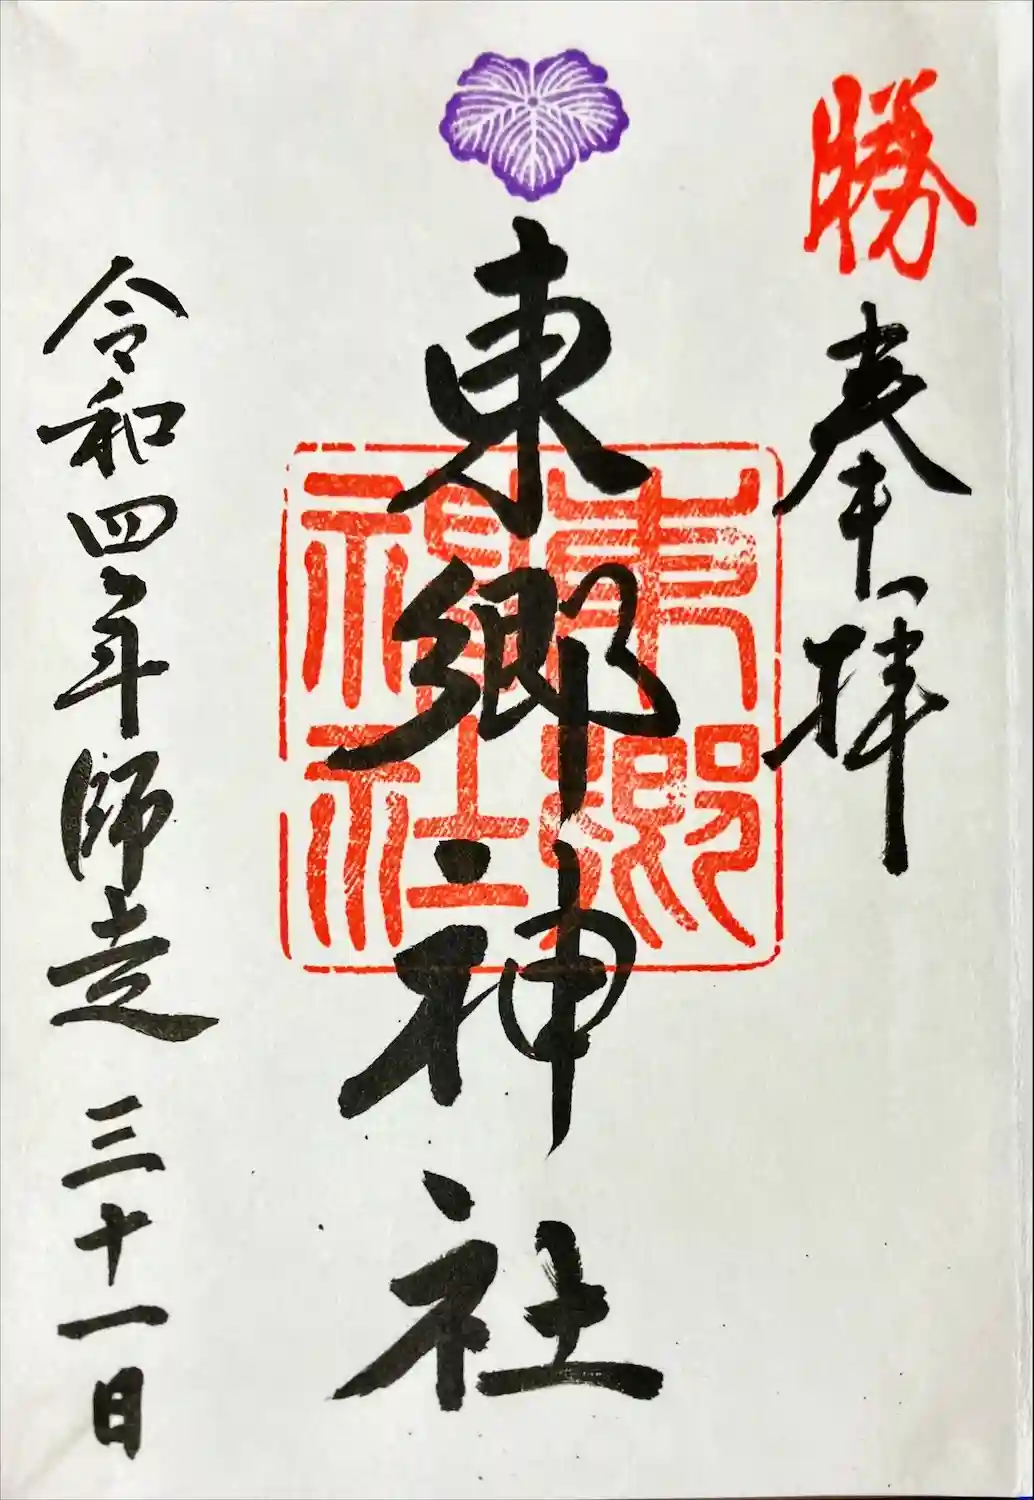 勝
奉拝
東郷神社
東郷
神社
令和四年師走三十一日